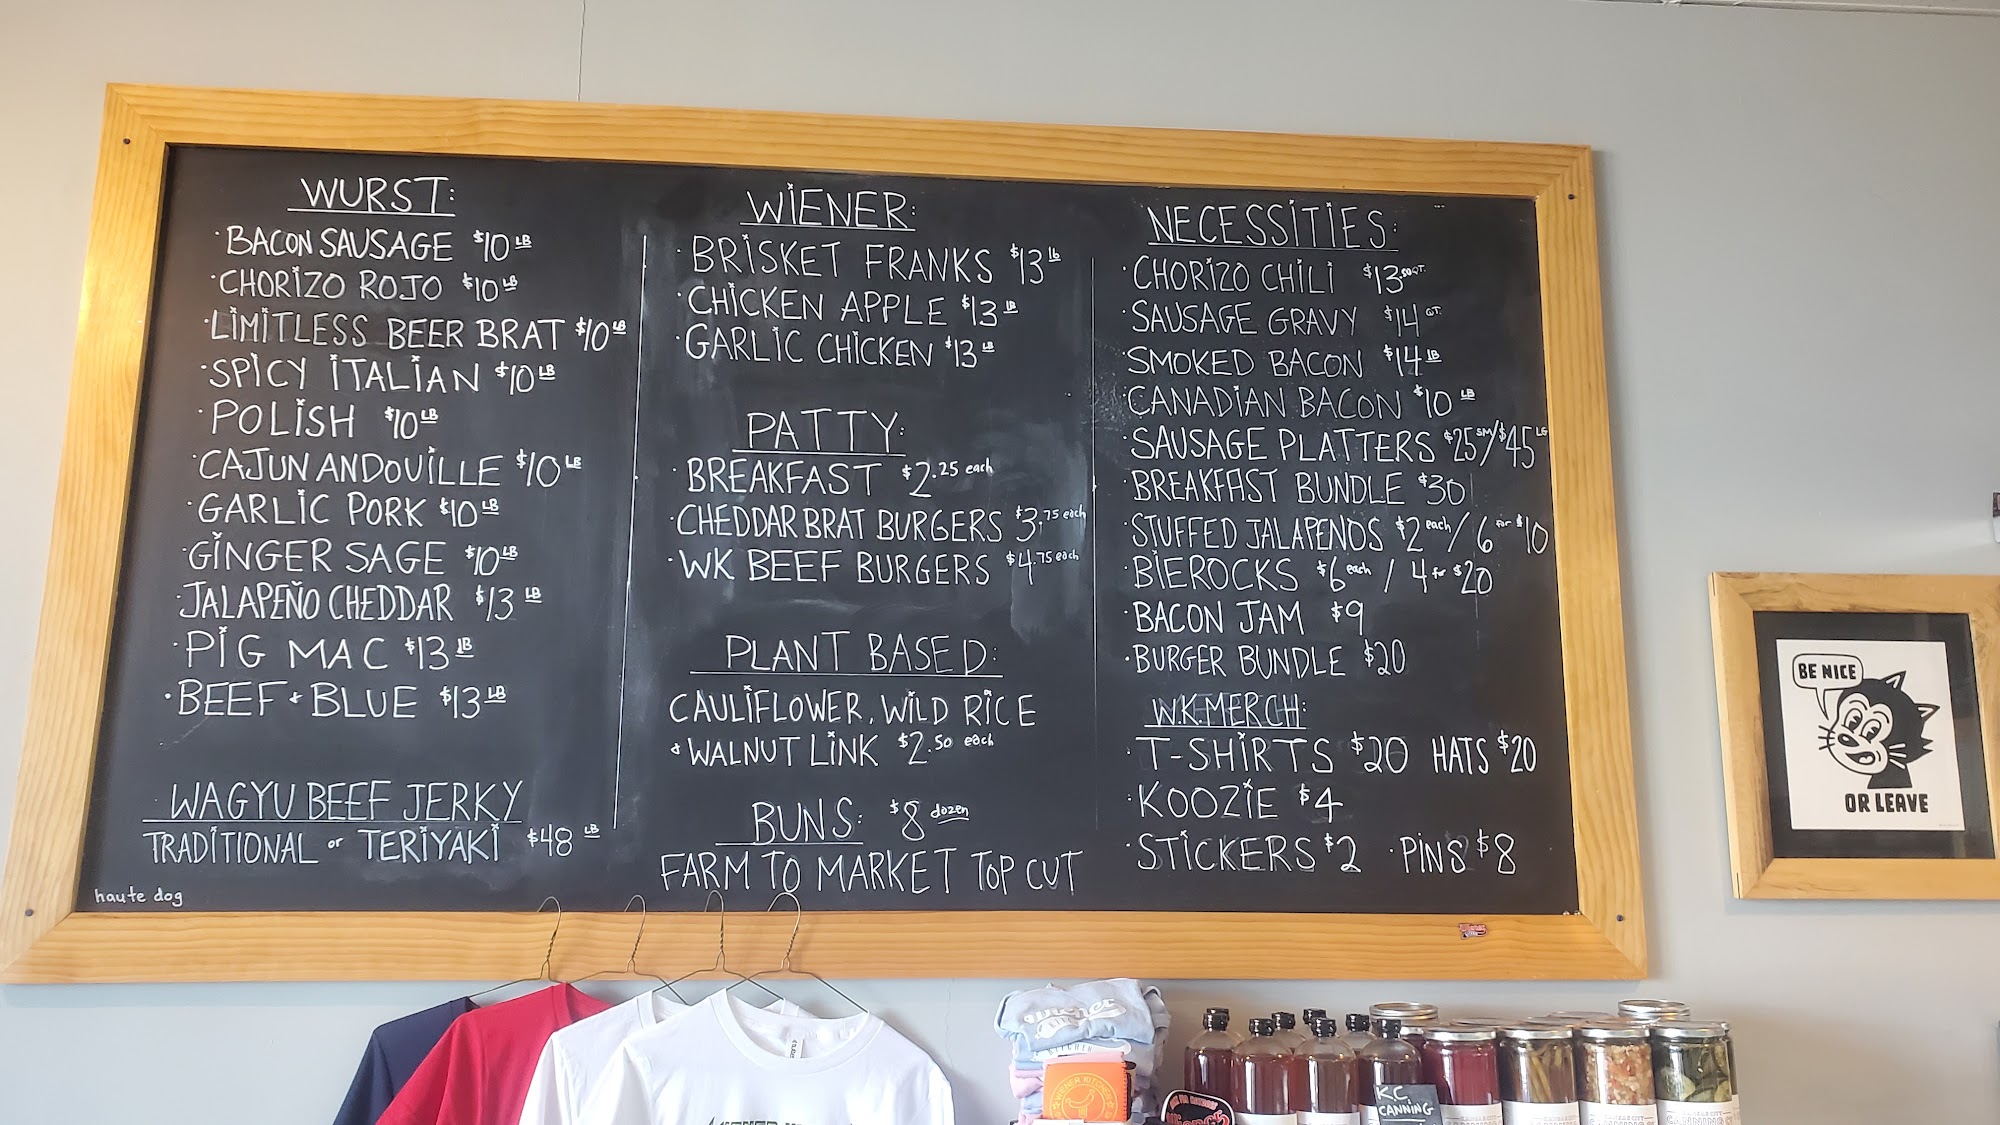 WURST:
· BACON SAUSAGE $10 LB
· CHORIZO ROJO $10 LB
· LIMITLESS BEER BRAT $10 LB
· SPICY ITALIAN $10 LB
· POLISH $10 LB
· CAJUN ANDOUILLE $10 LB
· GARLIC PORK $10 LB
· GINGER SAGE $10 LB
JALAPEÑO CHEDDAR $13 LB
· PIG MAC $13 LB
· BEEF + BLUE $13 LB
· WAGYU BEEF JERKY
TRADITIONAL or TERIYAKI $48 LB
haute dog
WIENER:
· BRISKET FRANKS $13 lb
· CHICKEN APPLE $13 LB
· GARLIC CHICKEN $13 LB
PATTY:
· BREAKFAST $2.25 each
· CHEDDAR BRAT BURGERS $3.75 each
· WK BEEF BURGERS $4.75 each
PLANT BASED:
CAULIFLOWER, WILD RICE
+ WALNUT LINK $2.50 each
BUNS: $8 dozen
FARM TO MARKET TOP CUT
NECESSITIES:
· CHORIZO CHILI $13.50 QT.
· SAUSAGE GRAVY $14 QT.
· SMOKED BACON $14 LB
· CANADIAN BACON $10 LB
· SAUSAGE PLATTERS $25 SM/$45 LG
· BREAKFAST BUNDLE $30
· STUFFED JALAPENOS $2 each / 6 for $10
· BIEROCKS $6 each / 4 for $20
· BACON JAM $9
· BURGER BUNDLE $20
W.K. MERCH:
· T-SHIRTS $20 HATS $20
· KOOZIE $4
· STICKERS $2 · PINS $8
BE NICE
OR LEAVE
WIENER KITCHEN
K.C.
CANNING